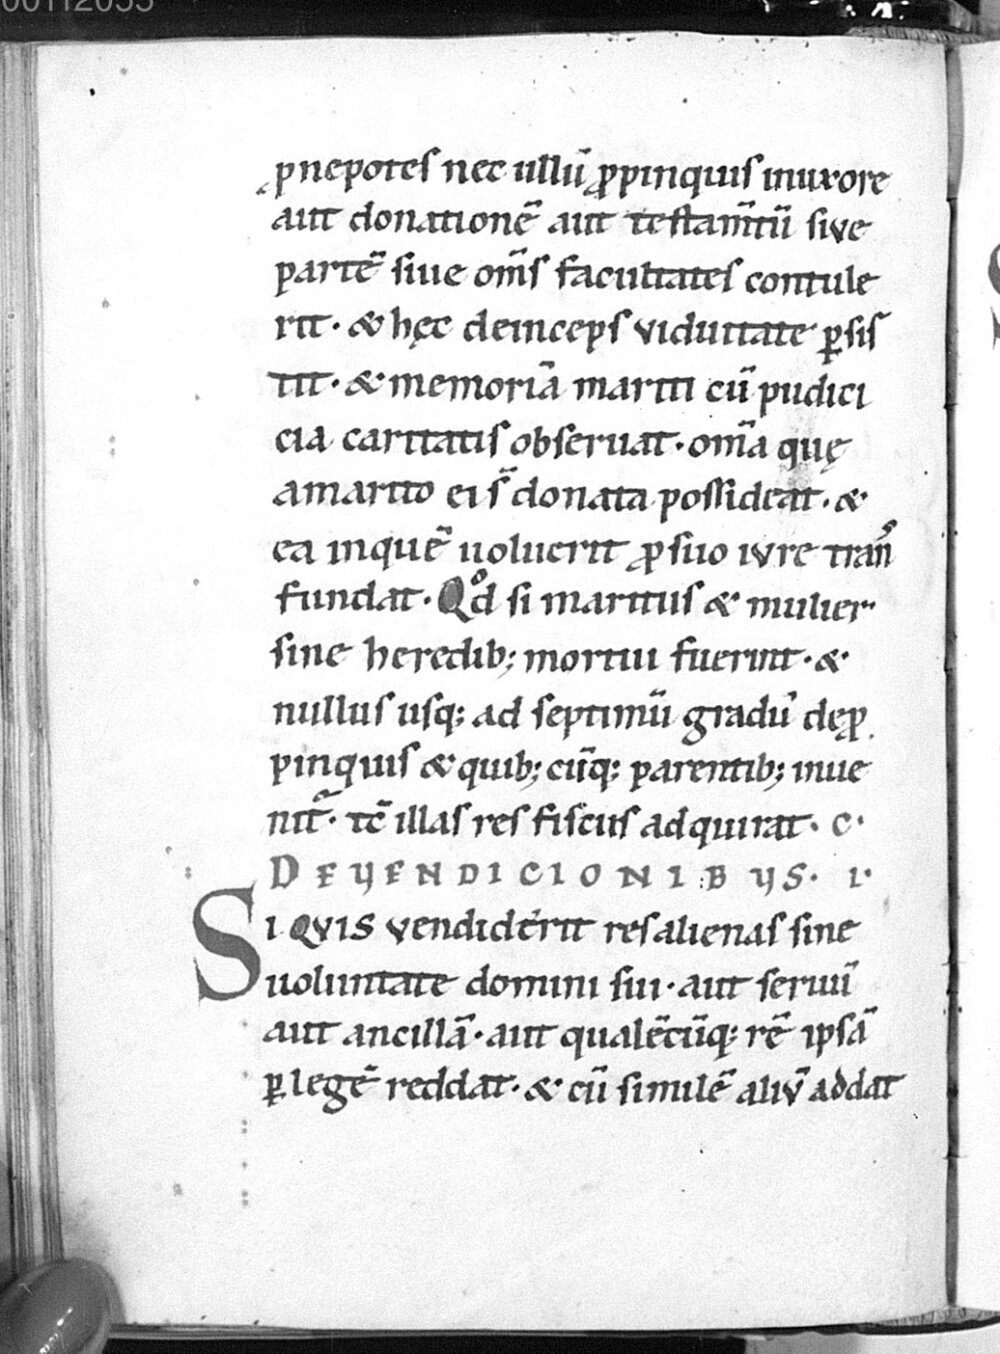 00112055
ꝓnepotes nec ullū ꝓpinquis inuxore
aut donationē aut testam̄tū sive
partē siue om̄s facultates contule
rit · & hęc deinceps viduitate ꝑsis
tit · & memoriā mariti cū pudici
cia caritatis obseruat · om̄a quę
amarito ei s̄ donata possideat · &
ea inquē uoluerit ꝓ suo ivre tranˢ
fundat · Qᵒd si maritus & mulier
sine heredib; mortui fuerint · &
nullus usq; ad septimū gradū deꝓ
pinquis & quib; cūq; parentib; inue
nit᷑ · tc̄ illas res fiscus adquirat · c·
DE VENDICIONIBVS · I·
SI QVIS vendiderit res alienas sine
uoluntate domini sui · aut seruū
aut ancillā · aut qualēcūq; rē ipsā
ꝑ legē reddat · & cū similē aliv̄ addat